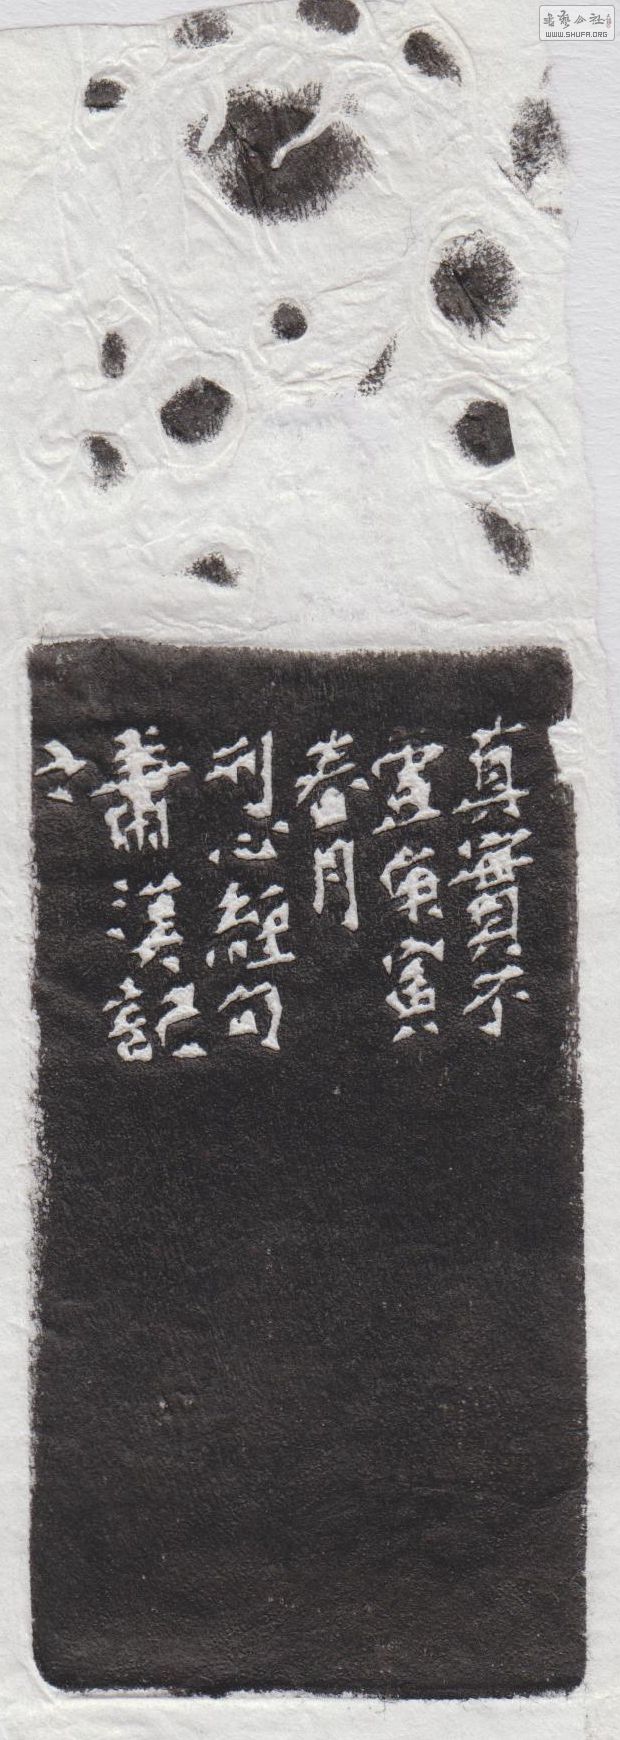 真實不
虛庚寅
春月
刊心經句
肅漢記
書藝公社
WWW.SHUFA.ORG